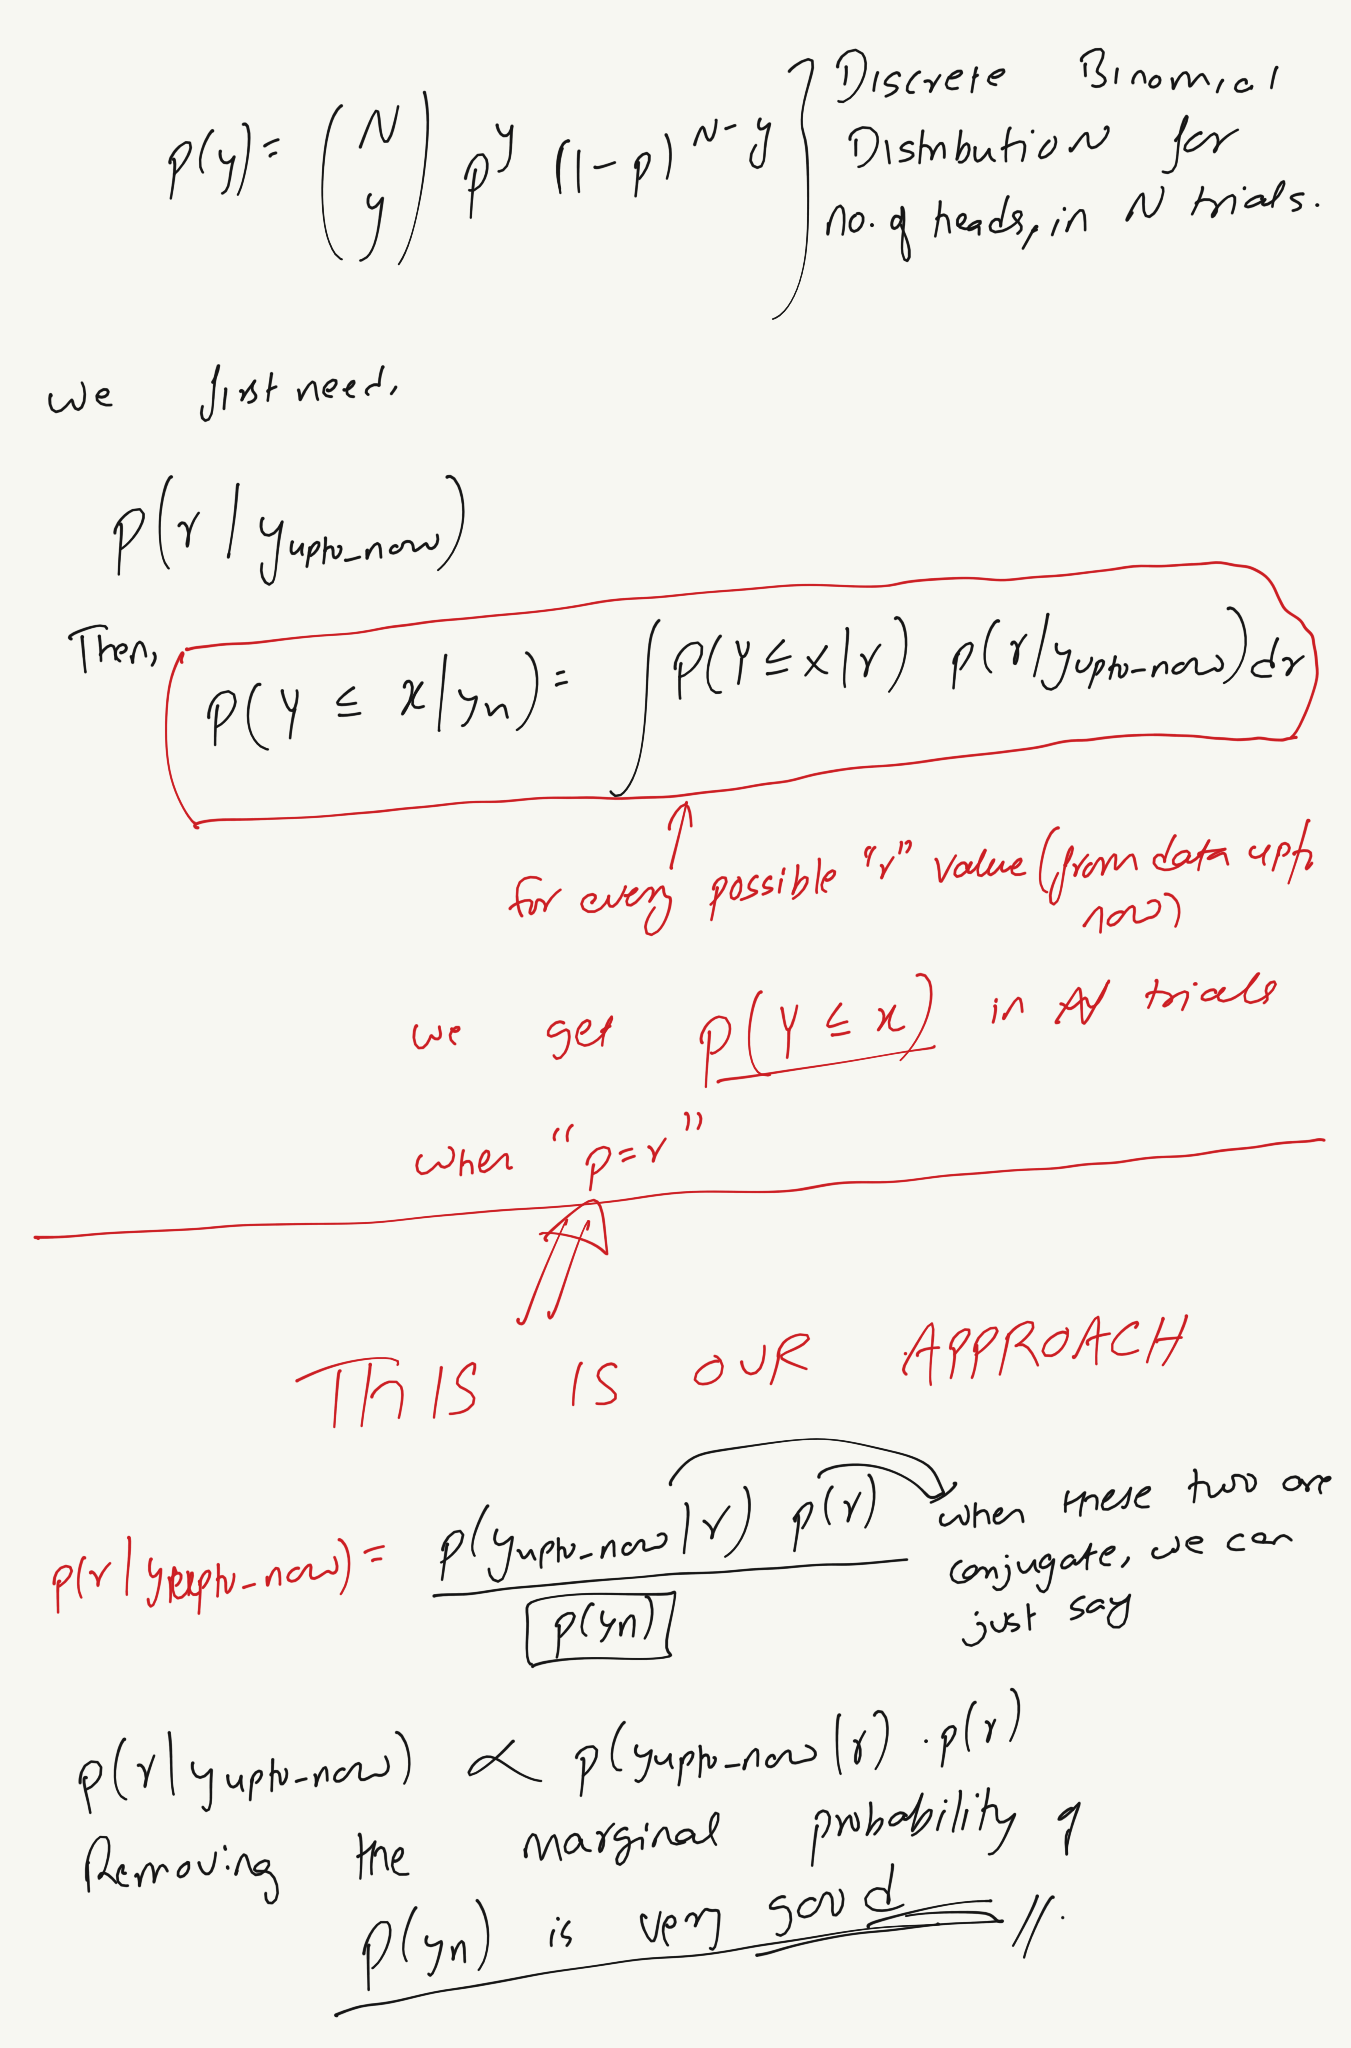 p(y) = (N y) p^y (1-p)^{N-y} } Discrete Binomial
Distribution for
no. of heads, in N trials.
we first need,
p(r / y_upto_now)
Then,
p(Y ≤ x / y_n) = ∫ p(Y ≤ x | r) p(r / y_upto_now) dr
for every possible "r" value (from data upto
now)
we get p(Y ≤ x) in N trials
when "p=r"
THIS IS OUR APPROACH
p(r | y_upto_now) = p(y_upto_now | r) p(r) / p(y_n)
when these two are
conjugate, we can
just say
p(r | y_upto_now) ∝ p(y_upto_now | r) . p(r)
Removing the marginal probability of
p(y_n) is very good //.